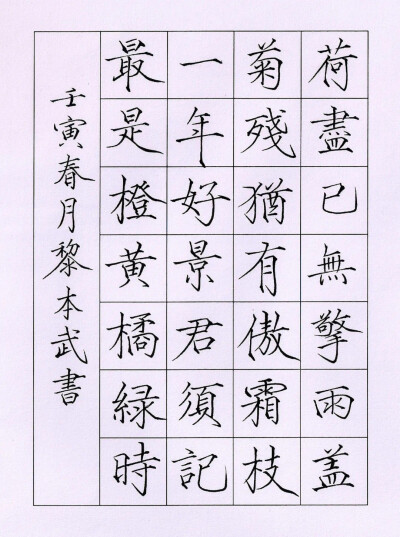 荷盡已無擎雨盖
菊殘猶有傲霜枝
一年好景君須記
最是橙黃橘緑時
壬寅春月黎本武書